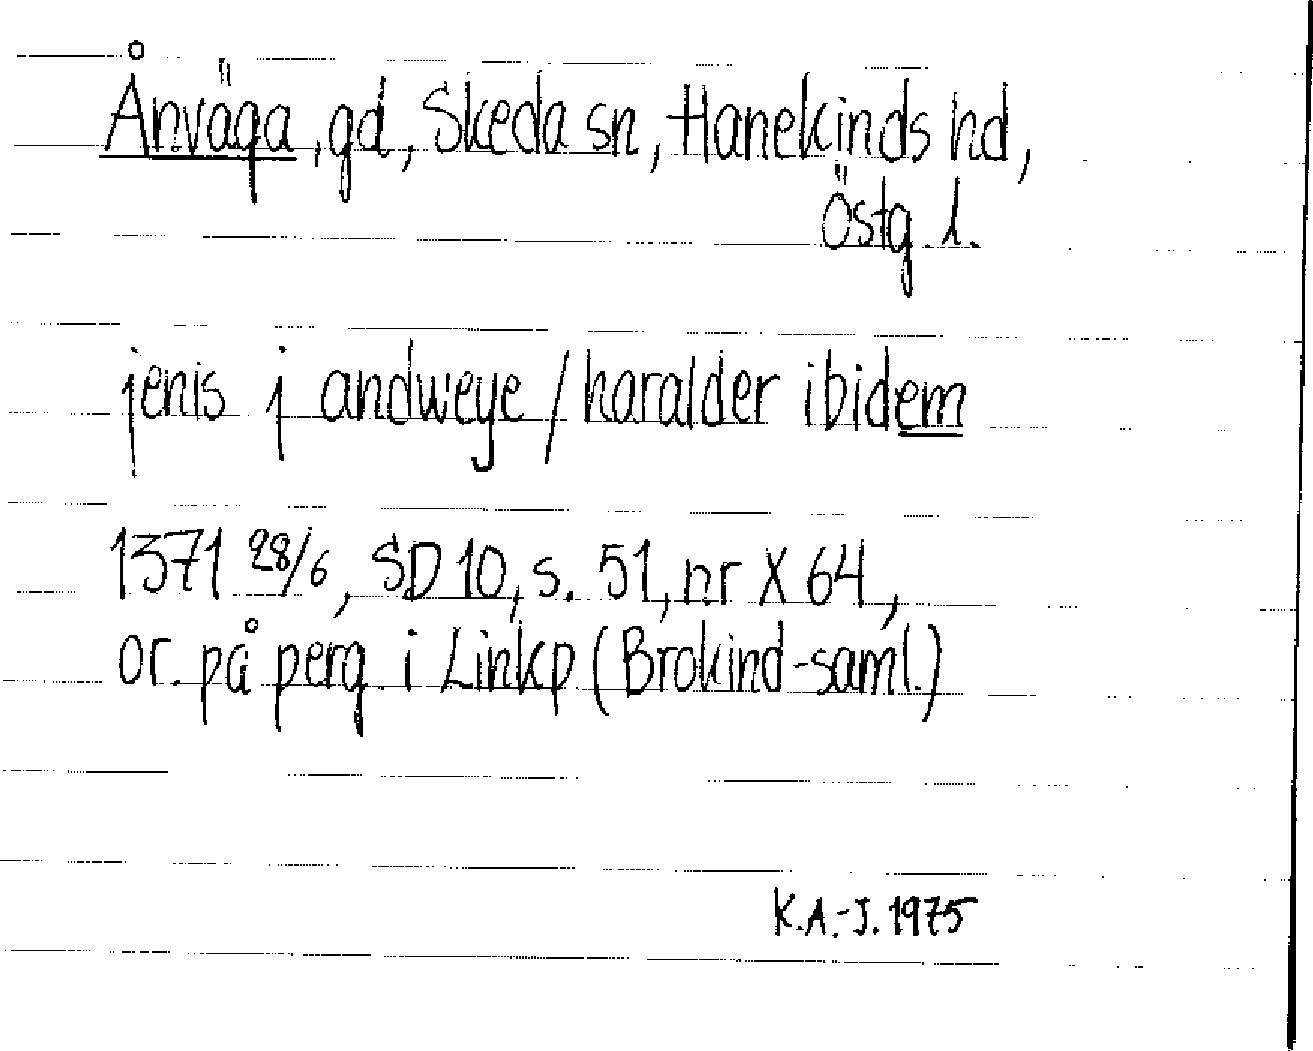 Ånväga, gd, Skeda sn, Hanekinds hd,
Östg. l.
jenis j andweye / haralder ibidem
1371 28/6, SD 10, s. 51, nr X 64,
or. på perg. i Linkp (Brokind-saml.)
K.A.-J. 1975